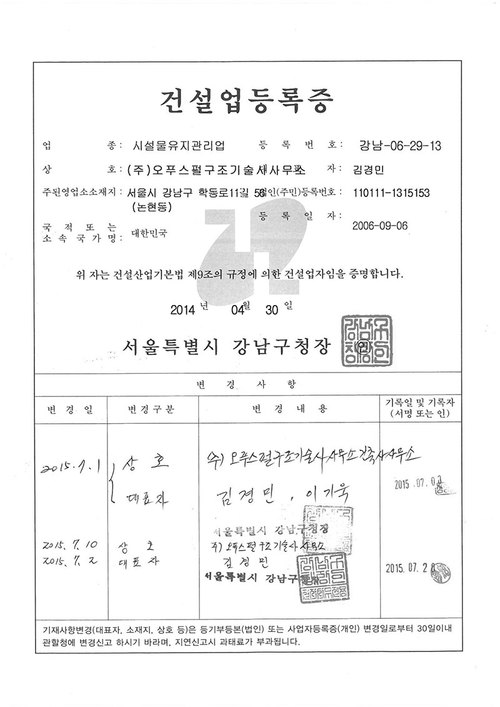 건설업등록증
업 종: 시설물유지관리업 등 록 번 호: 강남-06-29-13
상 호: (주)오푸스펄구조기술사사무소 김경민
주된영업소소재지: 서울시 강남구 학동로11길 56 법인(주민)등록번호: 110111-1315153
(논현동)
국 적 또 는 소 속 국 가 명: 대한민국 등 록 일 자: 2006-09-06
위 자는 건설산업기본법 제9조의 규정에 의한 건설업자임을 증명합니다.
2014 년 04월 30 일
서울특별시 강남구청장 인
변 경 사 항
변 경 일 변경구분 변 경 내 용 기록일 및 기록자 (서명 또는 인)
2015.7.1 상 호 (주)오푸스펄구조기술사사무소건축사사무소 2015.07.0
대표자 김경민, 이기욱
서울특별시 강남구청장
2015.7.10 상 호 (주)오푸스펄구조기술사사무소
2015.7.2 대표자 김경민 2015.07.2
서울특별시 강남구청장
기재사항변경(대표자, 소재지, 상호 등)은 등기부등본(법인) 또는 사업자등록증(개인) 변경일로부터 30일이내
관할청에 변경신고 하시기 바라며, 지연신고시 과태료가 부과됩니다.